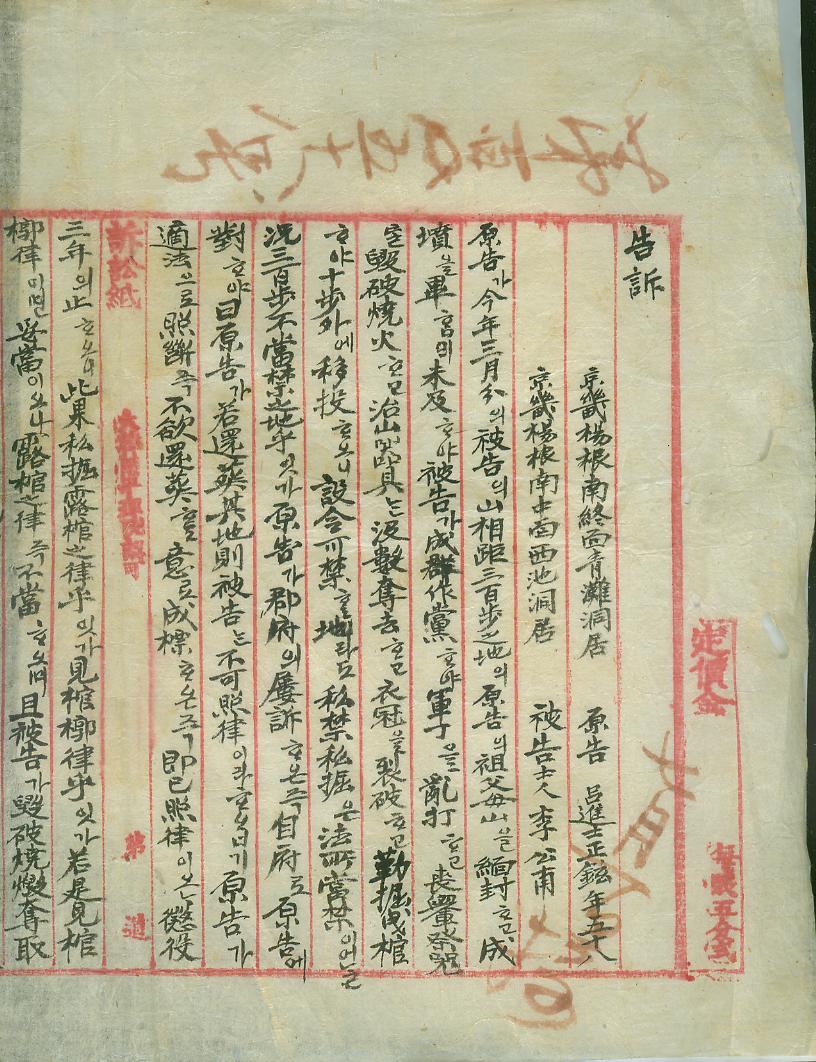 告訴
京畿楊根南終面青灘洞居 原告 呂進士正鉉 年五十八
京畿楊根南中面西池洞居 被告士人 李公甫
原告가 今年三月分의 被告의 山相距三百步之地의 原告의 祖父母山을 緬封하고 成
墳을 畢하믜 未及하야 被告가 成群作黨하야 軍丁을 亂打하고 喪轝祭器
를 毁破燒火하고 治山器具는 沒數奪去하고 衣冠을 裂破하고 勒掘戔棺
하야 十步外에 移投하오니 設令可禁할 地라도 私禁私掘은 法所當禁이어든
況三百步不當禁之地乎잇가 原告가 郡府의 屢訴하온즉 自府로 原告에
對하야 曰 原告가 若還葬其地則 被告는 不可照律이라 하옵기 原告가
適法으로 照斷즉 不欲還葬할 意로 成標하온즉 即已照律이온 懲役
三年의 止하오니 此果私掘露棺之律乎잇가 見棺槨律乎잇가 若是見棺
槨律이면 妥當이오나 露棺之律즉 不當하오며 且被告가 毁破燒燬奪取
訴訟紙
第 道
定價金
每張五分式